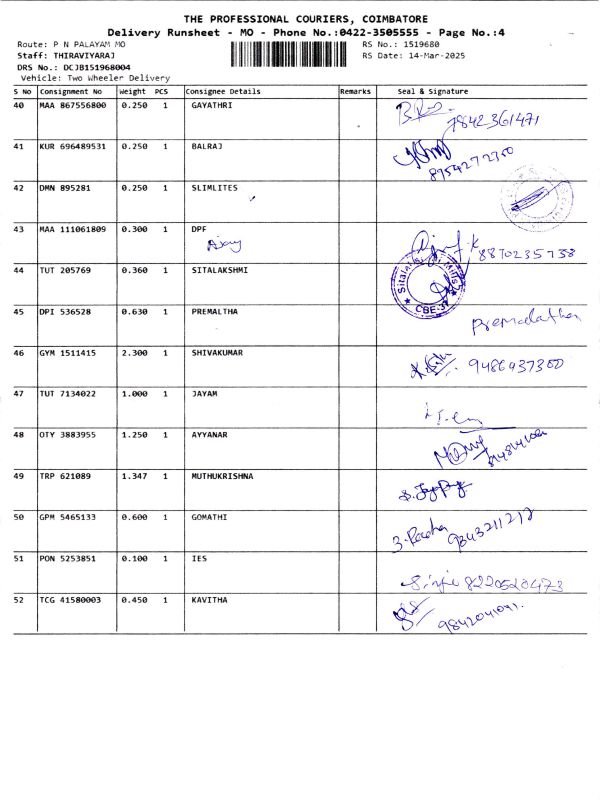 THE PROFESSIONAL COURIERS, COIMBATORE
Delivery Runsheet - MO - Phone No.:0422-3505555 - Page No.:4
Route: P N PALAYAM MO
RS No.: 1519680
Staff: THIRAVIYARAJ
RS Date: 14-Mar-2025
DRS No.: DCJB151968004
Vehicle: Two Wheeler Delivery
S No Consignment No Weight PCS Consignee Details Remarks Seal & Signature
40 MAA 867556800 0.250 1 GAYATHRI
9842361471
41 KUR 696489531 0.250 1 BALRAJ
8954272350
42 DMN 895281 0.250 1 SLIMLITES
43 MAA 111061809 0.300 1 DPF
Ajay
8870235738
44 TUT 205769 0.360 1 SITALAKSHMI
CBE-37
45 DPI 536528 0.630 1 PREMALTHA
Premalatha
46 GYM 1511415 2.300 1 SHIVAKUMAR
9486937300
47 TUT 7134022 1.000 1 JAYAM
48 OTY 3883955 1.250 1 AYYANAR
49 TRP 621089 1.347 1 MUTHUKRISHNA
50 GPM 5465133 0.600 1 GOMATHI
9843211212
51 PON 5253851 0.100 1 IES
8220520473
52 TCG 41580003 0.450 1 KAVITHA
9842041041